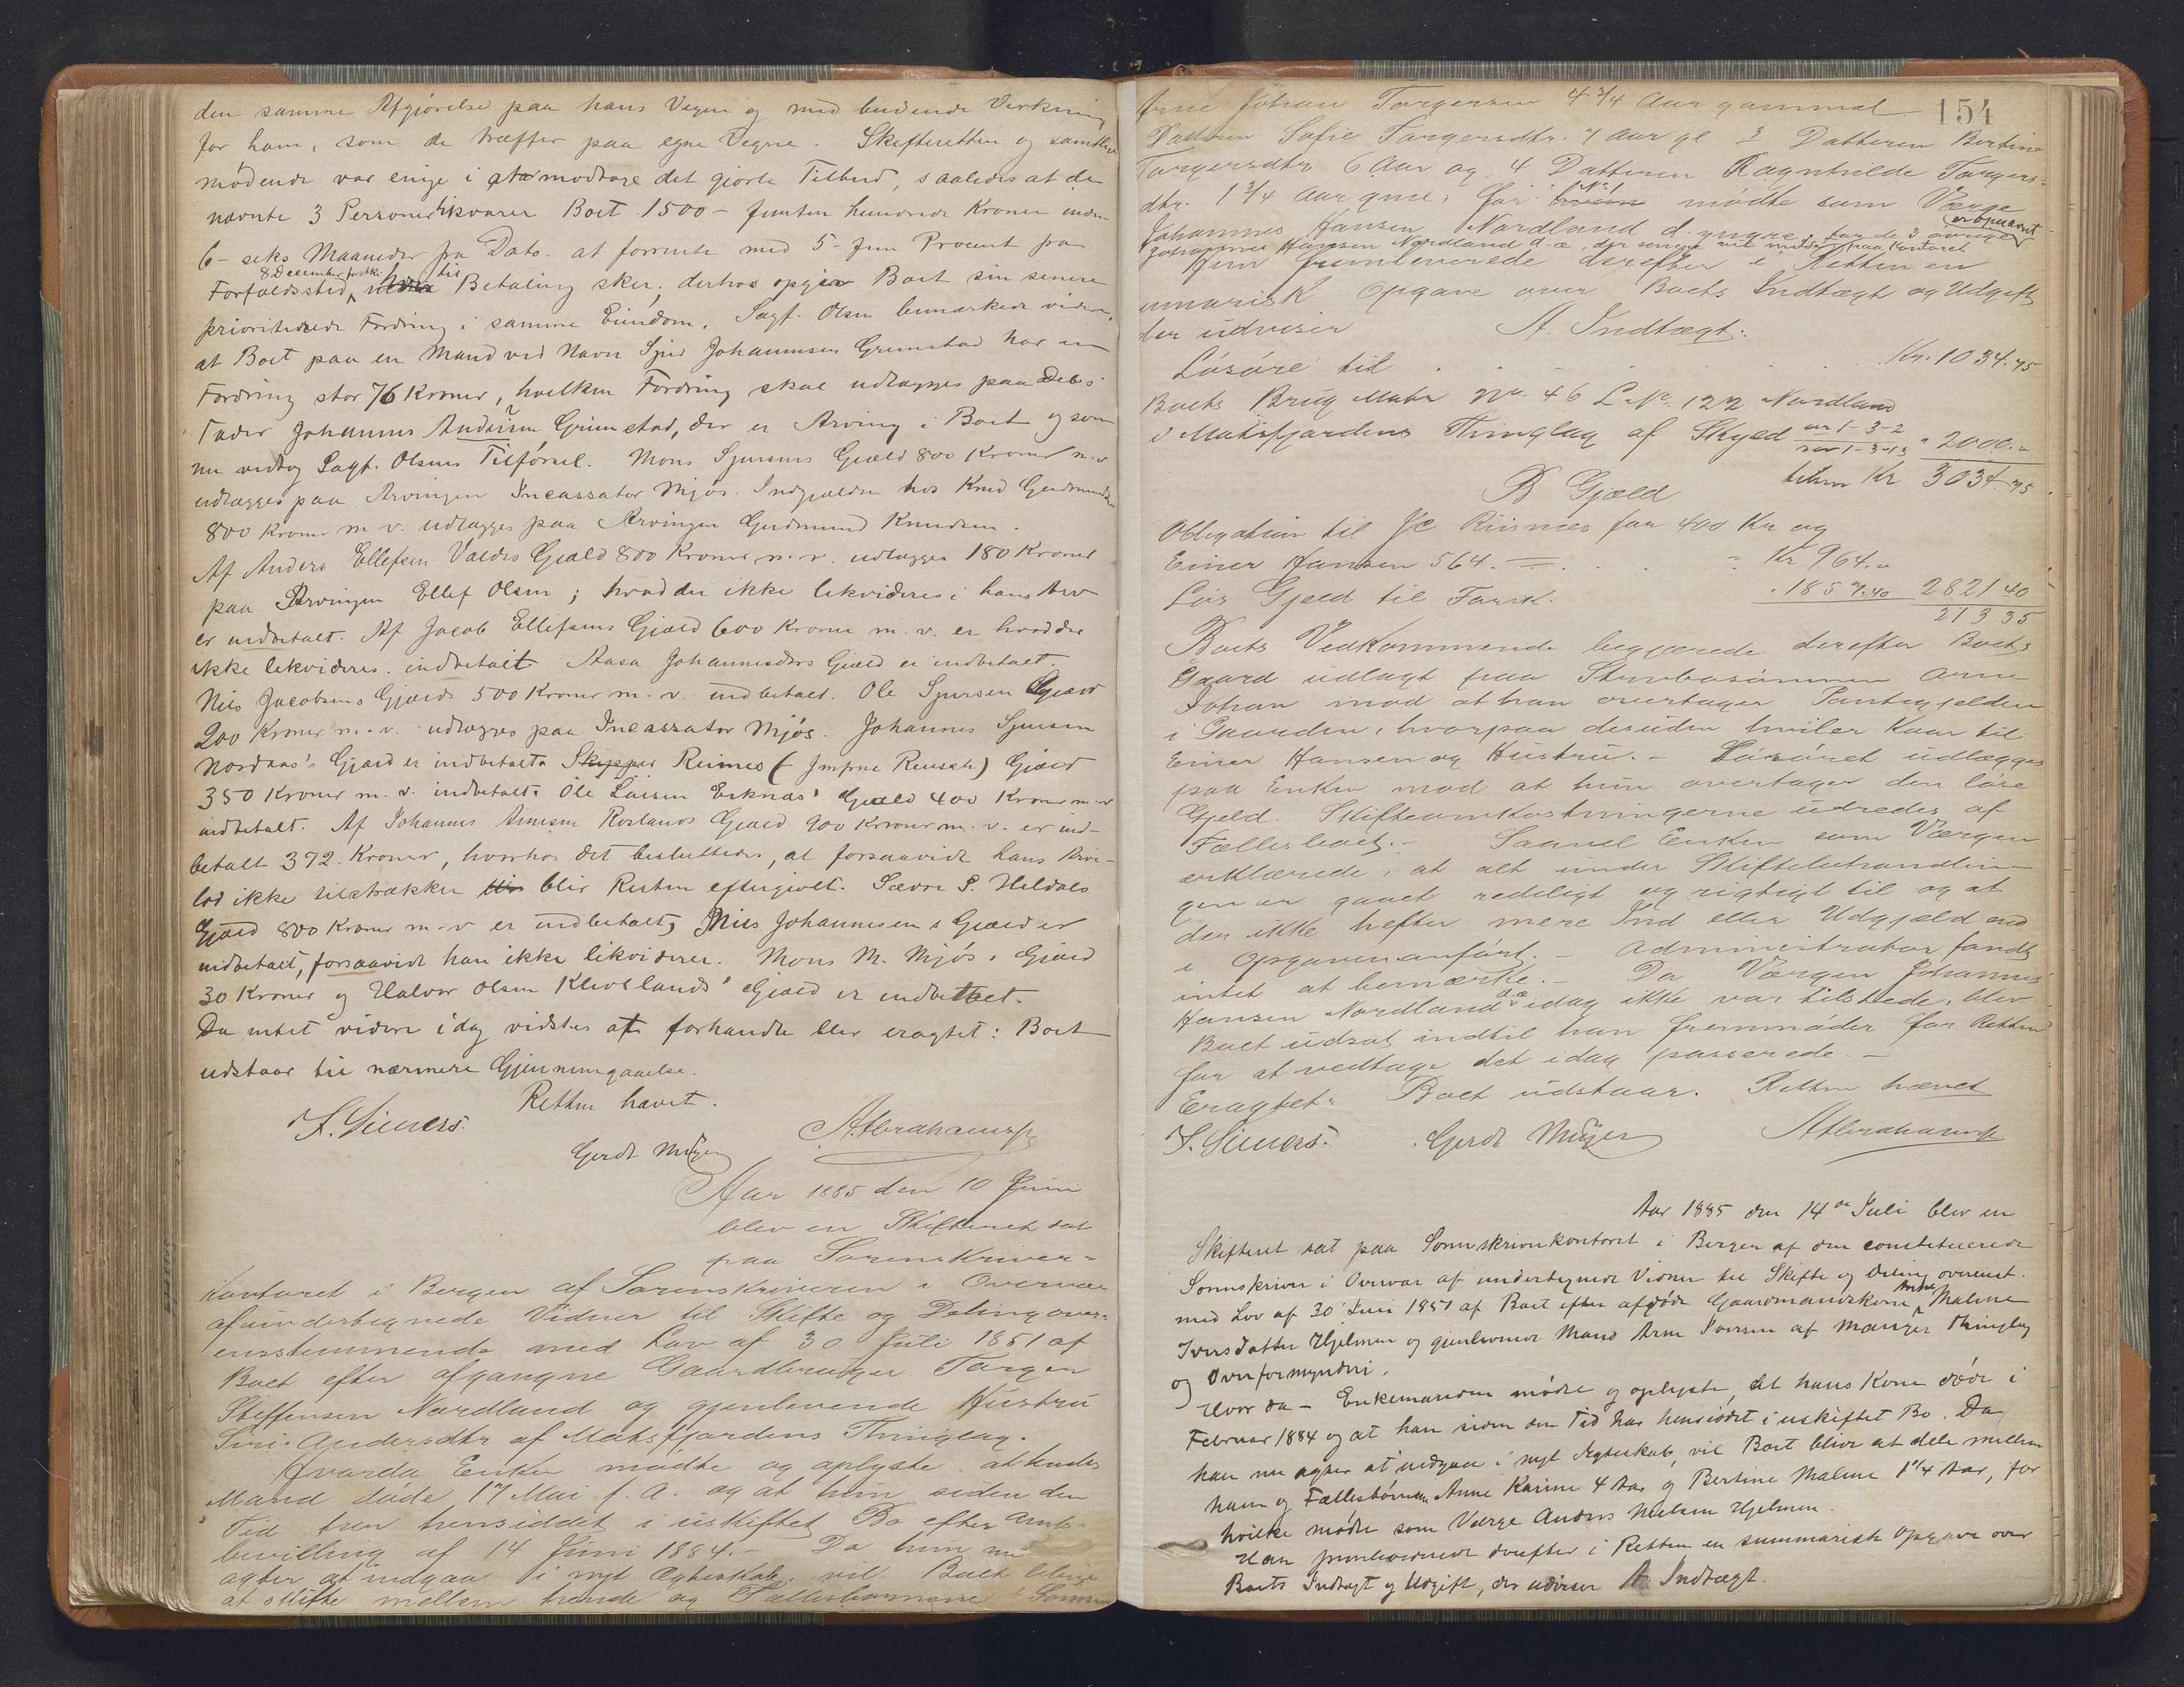 den samme Afgjørelse paa hans Vegne og med bindende Virkning
for ham, som de træffer paa egne Vegne. Skifteretten og samtlige
mødende var enige i at modtage det gjorte Tilbud, saaledes at de
nævnte 3 Personer tilsvarer Boet 1500 - femten hundrede Kroner inden
6 - seks Maaneder fra Dato. at forrente med 5 - fem Procent fra
8 December forstk. til
Forfaldstid, Betaling sker; derhos opgiver Boet sin senere
prioriterede Fordring i samme Eiendom. Sagf. Olsen bemærkede videre,
at Boet paa en Mand ved Navn Sjur Johannesen Grimstad har en
Fordring stor 76 Kroner, hvilken Fordring skal udlægges paa Debs
Fader Johannes Andersen Grimstad, der er Arving i Boet og som
nu vedtog Sagf. Olsens Tilførsel. Mons Sjursens Gjæld 800 Kroner m.v
udlægges paa Arvingen Incassator Mjøs. Indgjælden hos Knud Gudmundsen
800 Kroner m v. udlægges paa Arvingen Gudmund Knudsen.
Af Anders Ellefsen Valdes Gjæld 800 Kroner m. v. udlægges 180 Kroner
paa Arvingen Ellef Olsen; hvad der ikke likvideres i hans Arv
er indbetalt. Af Jacob Ellefsens Gjæld 600 Kroner m. v. er hvad der
ikke likvideres. indbetalt Aasa Johannesdtrs Gjæld er indbetalt.
Nils Jacobsens Gjæld 500 Kroner m. v. indbetalt. Ole Sjursen Gjæld
200 Kroner m. v. udlægges paa Incassator Mjøs. Johannes Sjursen
Nordaas's Gjæld er indbetalt. Skipper Reimes (Jmfrue Reusch) Gjæld
350 Kroner m. v. indbetalt. Ole Larsen Eiknæs' Gjæld 400 Kroner m. v
indbetalt. Af Johannes Arnesen Roslands Gjæld 900 Kroner m. v. er ind-
betalt 372. Kroner, hvorhos det besluttedes, at forsaavidt hans Arve-
lod ikke tilstrækker blir Resten eftergivet. Sævre P. Heldals
Gjæld 800 Kroner m. v er indbetalt, Nils Johannesens Gjæld er
indbetalt, forsaavidt han ikke likviderer. Mons M. Mjøs's Gjæld
30 Kroner og Halvor Olsen Klevelands' Gjæld er indbetalt.
Da intet videre idag vidstes at forhandle blev eragtet: Boet
udstaar til nærmere Gjennemgaaelse.
Retten hævet.
F. Siewers. Gerdt Meyer AAbrahamsen
Aar 1885 den 10 Juni
blev en Skifteret sat
paa Sorenskriver-
kontoret i Bergen af Sorenskriveren i Overvær
af undertegnede Vidner til Skifte og Deling over-
ensstemmende med Lov af 30 Juli 1851 af
Boet efter afgangne Gaardbruger Torger
Steffensen Nordland og gjenlevende Hustru
Siri Andersdtr af Matsfjordens Thinglag.
Hvorda Enken mødte og oplyste, at hendes
Mand døde 17 Mai f. A. og at hun siden den
Tid har hensiddet i uskiftet Bo efter Amts-
bevilling af 14 Juni 1884. - Da hun nu
agter at indgaa i nyt Ægteskab, vil Boet blive
at skifte mellem hende og Fællesbørnene 1 Sønnen
154
Arne Johan Torgersen 4 3/4 Aar gammel
Datteren Sofie Torgersdtr. 7 Aar gl. 3 Datteren Bertine
Torgersdtr 6 Aar og 4 Datteren Ragnhilde Torgers-
dtr. 1 3/4 Aar gmel, for No 1 mødte som Værge
Johannes Hansen Nordland d. yngre, for de 3 øvrige er opnævnt
Johannes Hansen Nordland d. æ, der senere vil møde paa Kontoret
Hun fremleverede derefter i Retten en
summarisk Opgave over Boets Indtægt og Udgift
der udviser A. Indtægt:
Løsøre til Kr. 1034.75
Boets Brug Matr No. 46 L.No. 122 Nordland
i Matsfjordens Thinglag af Skyld ur 1-3-2
rev 1-3-13 " 2000.„
tilsm Kr 3034.75
B Gjæld
Obligation til Jc Riisnæs for 400 Kr og
Einer Hansen 564. Kr 964.„
Løs Gjeld til Forsk. " 1857.40 2821 40
213.35
Boets Vedkommende begjærede derefter Boets
Gaard udlagt paa Stervbosønnen Arne
Johan mod at han overtager Pantegjelden
i Gaarden, hvorpaa desuden hviler Kaar til
Einer Hansen og Hustru. - Løsøret udlægges
paa Enken mod at hun overtager den løse
Gjeld. Skifteomkostningerne udredes af
Fællesboet. - Saavel Enken som Værgen
erklærede, at alt under Skiftebehandlin-
gen er gaaet redeligt og rigtigt til og at
der ikke hefter mere Ind eller Udgjæld end
i Opgaven anført. - Administrator fandt
intet at bemærke. - Da Værgen Johannes
Hansen Nordland d æ idag ikke var tilstede, blev
Boet udsat indtil han fremmøder for Retten
for at vedtage det idag passerede. -
Eragtet: Boet udstaar. Retten hævet
F. Siewers. Gerdt Meyer AAbrahamsen
Aar 1885 den 14de Juli blev en
Skifteret sat paa Sorenskriverkontoret i Bergen af den constituerede
Sorenskriver i Overvær af undertegnede Vidner til Skifte og Deling overenst.
med Lov af 30 Juli 1851 af Boet efter afdøde Gaardmandskone Anne Maline
Iversdatter Hjelmen og gjenlevende Mand Arne Iversen af Manger Thinglag
og Overformynderi.
Hvor da - Enkemanden mødte og oplyste, at hans Kone døde i
Februar 1884 og at han siden den Tid har hensiddet i uskiftet Bo. Da
han nu agter at indgaa i nyt Ægteskab, vil Boet blive at dele mellem
ham og Fællesbørnene Anne Karine 4 Aar og Bertine Maline 1 1/4 Aar, for
hvilke mødte som Værge Anders Nielsen Hjelmen.
Han fremleverede derefter i Retten en summarisk Opgave over
Boets Indtægt og Udgift, der udviser A Indtægt.